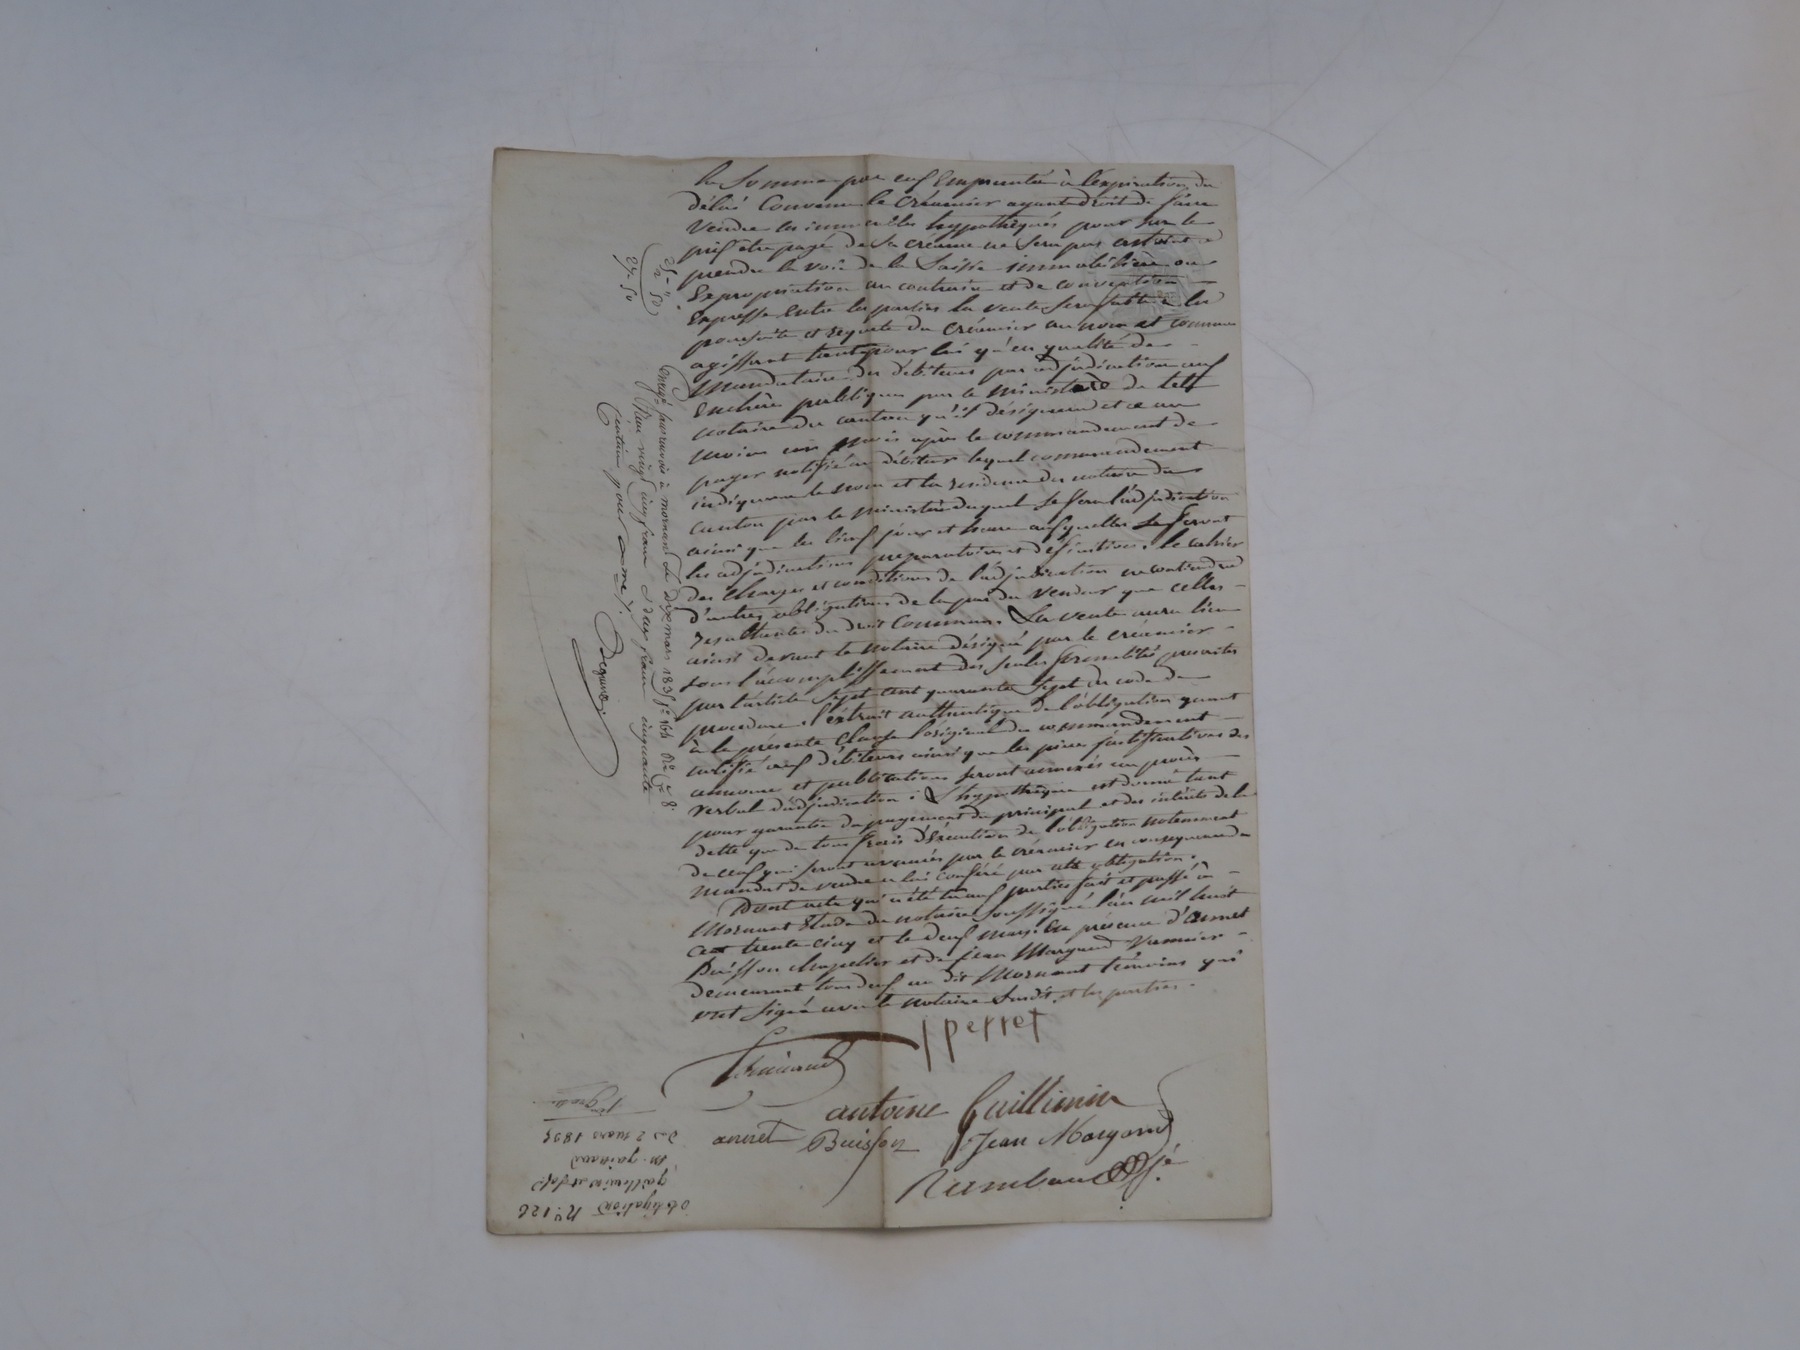 la Somme par eux Empruntée à l'expiration du
délai Convenu le Créancier ayant droit de faire
Vendre les immeubles hypothéqués pour sur le
prix être payé de Sa créance ne Sera pas astreint à
prendre la voie de la Saisie immobilière ou
Expropriation au contraire et de convention
Expresse Entre les parties la vente Sera faite à la
poursuite et requete du Créancier au nom et comme
agissant tant pour lui qu'en qualité de
Mandataire des débiteurs par adjudication aux
Enchères publiques par le Ministère de tell
notaire du canton qu'il désignera et ce au
moins un mois après le commandement de
payer notifié au débiteur lequel commandement
indiquera le nom et la résidence du notaire du
canton par le ministère duquel Se fera l'adjudication
ainsi que les lieux jour et heure auxquelles Se feront
les adjudications preparatoires et definitives. le cahier
des Charges et conditions de l'adjudication ne contiendra
d'autres obligations de la part du Vendeur que celles
résultantes du droit Commun. La vente aura lieu
ainsi devant le notaire désigné par le créancier
sous l'accomplissement des seules formalités prescrites
par l'article Sept cent quarante Sept du code de
procedure. l'extrait authentique de l'obligation quant
à la présente Clause l'original du commandement
notifié aux débiteurs ainsi que les pièces justificatives des
annonces et publications seront annexés au procès
verbal d'adjudication. L'hypothèque est donnée tant
pour garantie du payement du principal et des intérêts de la
dette que de tous frais d'Exécution de l'obligation notamment
de ceux qui seront avancés par le créancier en consequence du
Mandat de vendre à lui conféré par cette obligation.
Dont acte qui a été aux parties fait et passé à
Mornant Etude du notaire Soussigné l'an mil huit
cent trente cinq et le deux mars. En présence d'annet
Buisson chapelier et de Jean Margand
demeurant tous deux au dit Mornant témoins qui
ont signé avec le notaire Susdit et les parties.
perret
antoine Guillimin
annet Buisson Jean Margand
Enregé à mornant Le dix mars 1835 fo 164 Ro Ce 8.
Reçu vingt cinq francs et deux francs cinquante
Centimes pour
25 "
2 50
27 50
obligation No 126
du 2 mars 1835